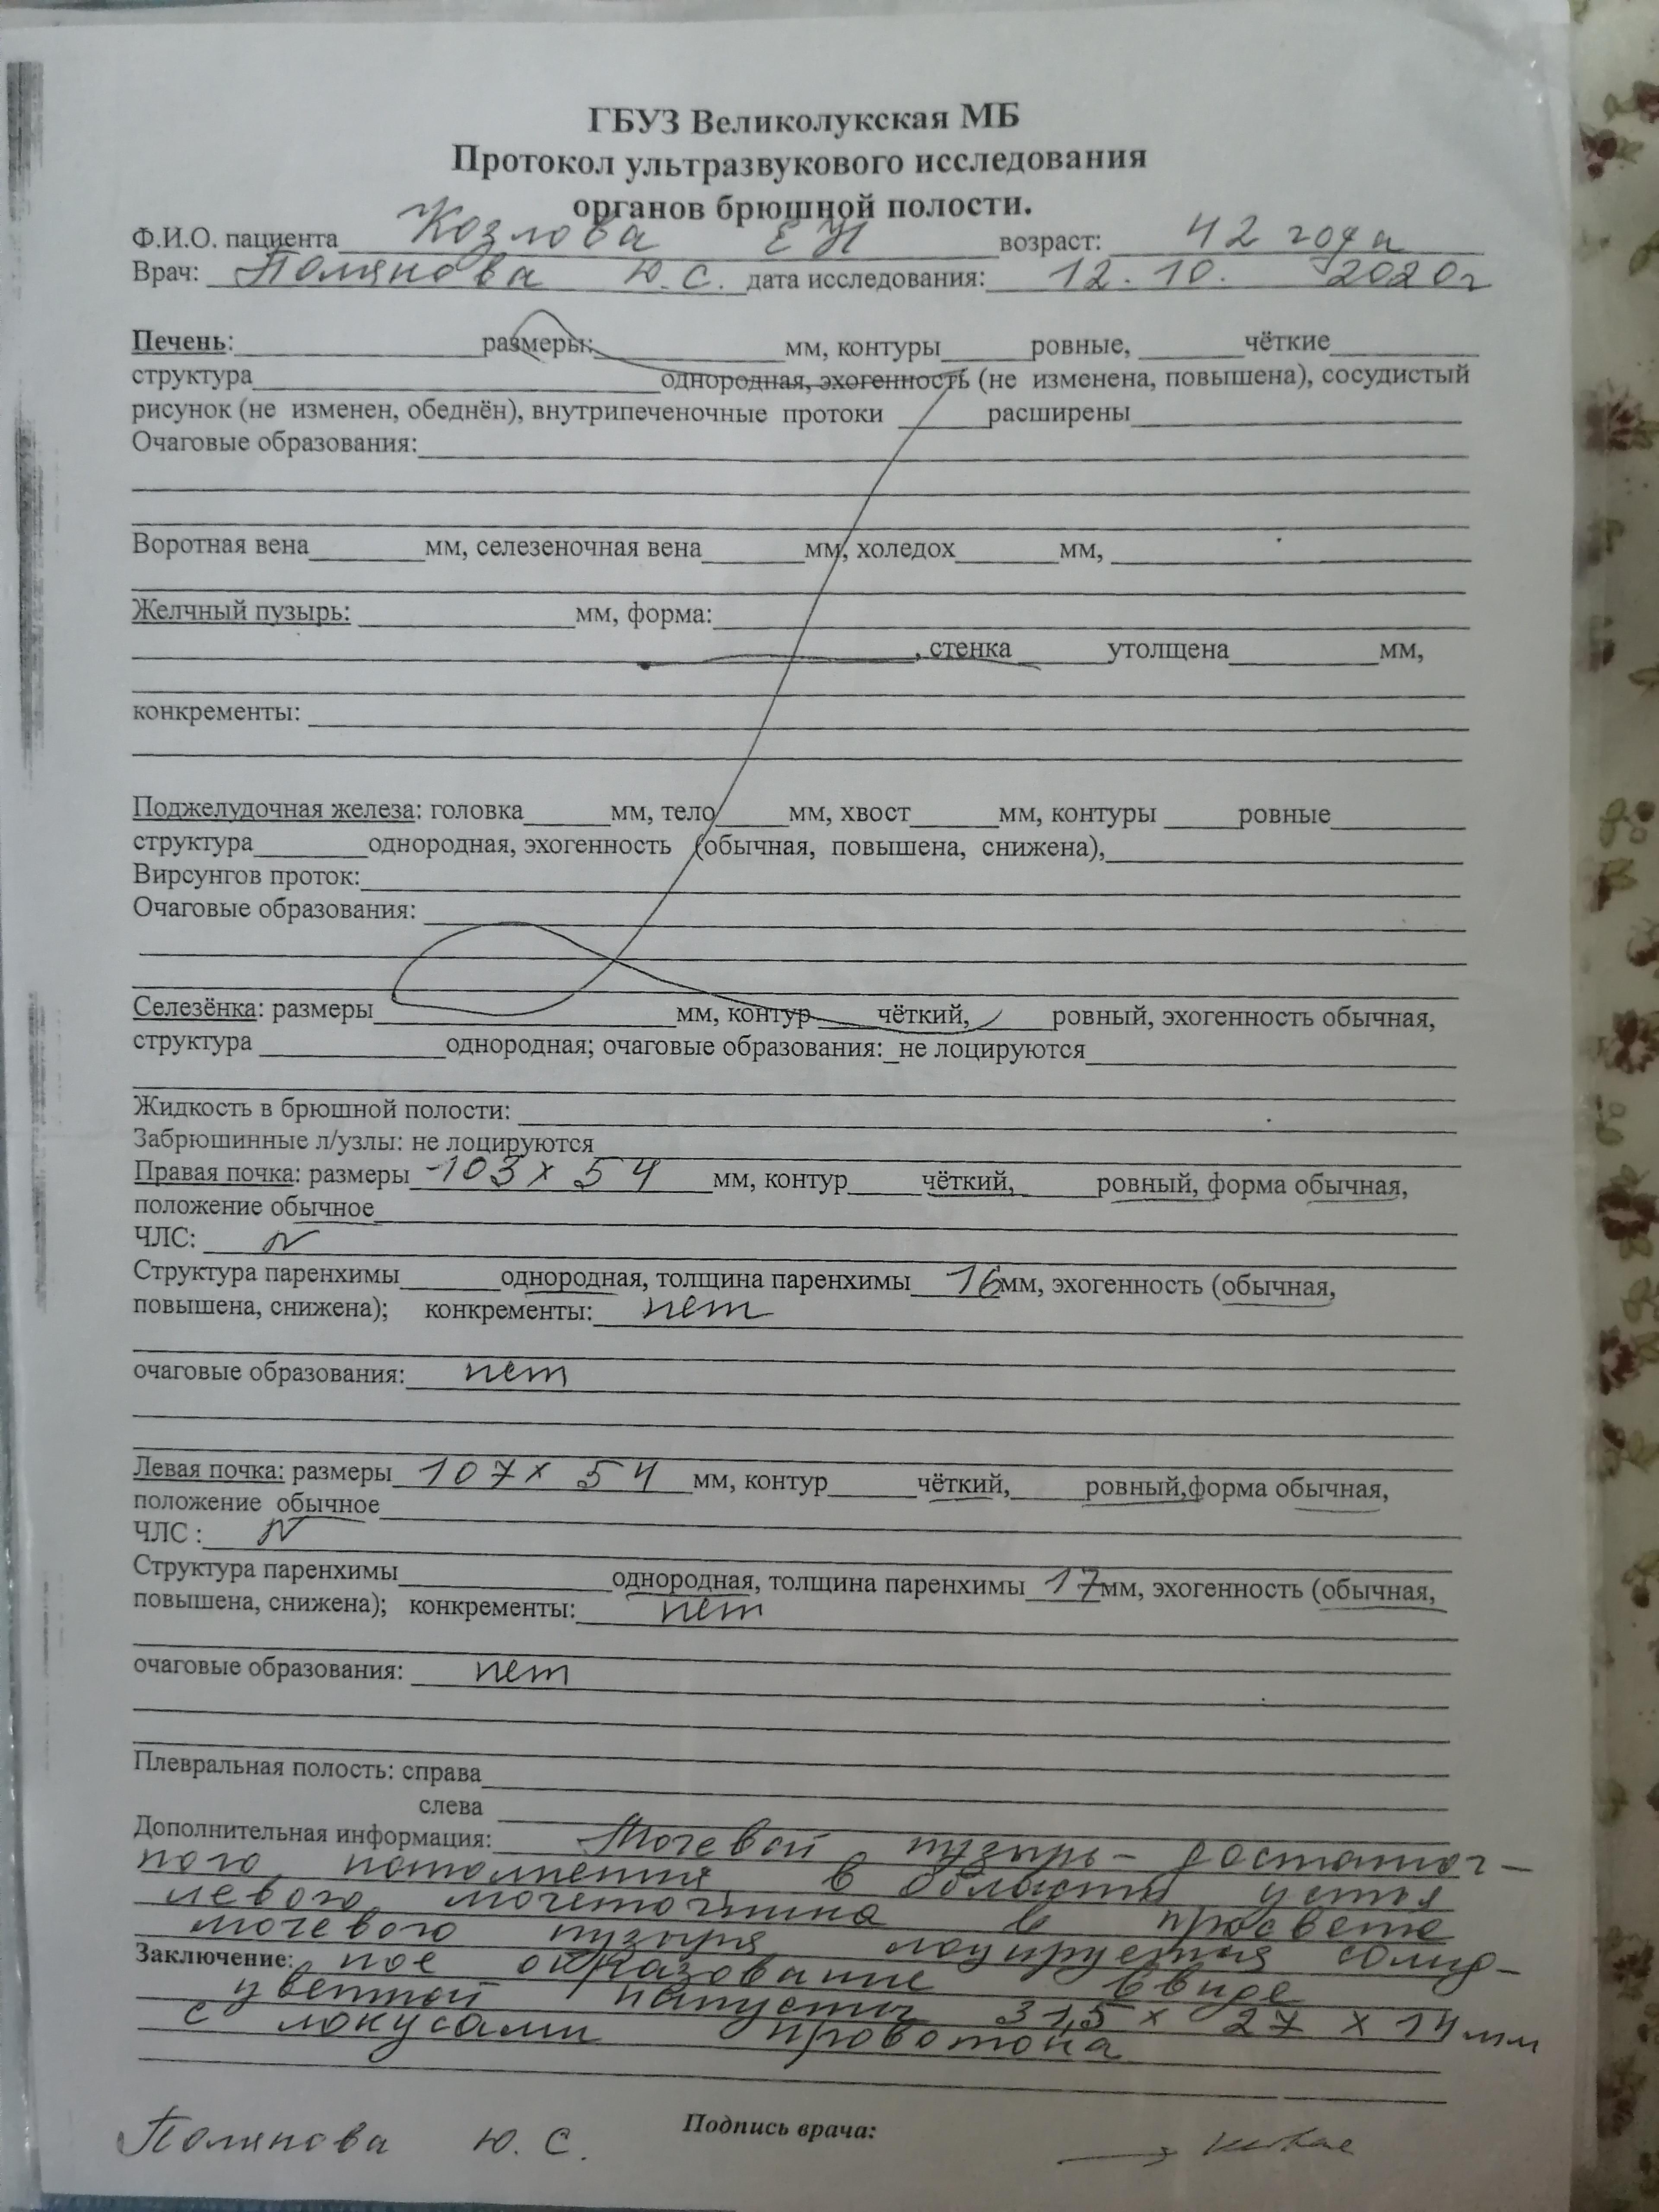 ГБУЗ Великолукская МБ
Протокол ультразвукового исследования
органов брюшной полости.
Ф.И.О. пациента Козлова Е Н возраст: 42 года
Врач: Полянова Ю.С. дата исследования: 12.10. 2020г
Печень: размеры: мм, контуры ровные, чёткие
структура однородная, эхогенность (не изменена, повышена), сосудистый
рисунок (не изменен, обеднён), внутрипеченочные протоки расширены
Очаговые образования:
Воротная вена мм, селезеночная вена мм, холедох мм,
Желчный пузырь: мм, форма:
, стенка утолщена мм,
конкременты:
Поджелудочная железа: головка мм, тело мм, хвост мм, контуры ровные
структура однородная, эхогенность (обычная, повышена, снижена),
Вирсунгов проток:
Очаговые образования:
Селезёнка: размеры мм, контур чёткий, ровный, эхогенность обычная,
структура однородная; очаговые образования: не лоцируются
Жидкость в брюшной полости:
Забрюшинные л/узлы: не лоцируются
Правая почка: размеры 103 х 54 мм, контур чёткий, ровный, форма обычная,
положение обычное
ЧЛС: N
Структура паренхимы однородная, толщина паренхимы 16 мм, эхогенность (обычная,
повышена, снижена); конкременты: нет
очаговые образования: нет
Левая почка: размеры 107 х 54 мм, контур чёткий, ровный,форма обычная,
положение обычное
ЧЛС : N
Структура паренхимы однородная, толщина паренхимы 17 мм, эхогенность (обычная,
повышена, снижена); конкременты: нет
очаговые образования: нет
Плевральная полость: справа
слева
Дополнительная информация: Мочевой пузырь - достаточ-
ного наполнения, в области устья
левого мочеточника в просвете
мочевого пузыря лоцируется солид-
Заключение: ное образование в виде
цветной капусты 31,5 х 27 х 14 мм
с локусами кровотока
Полянова Ю. С. Подпись врача: